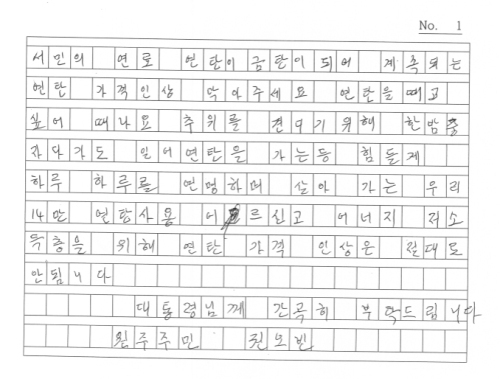 No. 1
서민의 연료 연탄이 금탄이 되어 계속되는
연탄 가격인상 막아주세요 연탄을 때고
싶어 때나요 추위를 견디기위해 한밤중
자다가도 일어 연탄을 가는등 힘들게
하루 하루를 연명하며 살아 가는 우리
14만 연탄사용 어르신고 에너지 저소
득층을 위해 연탄 가격 인상은 절대로
안됩니다
대통령님께 간곡히 부탁드립니다
원주주민